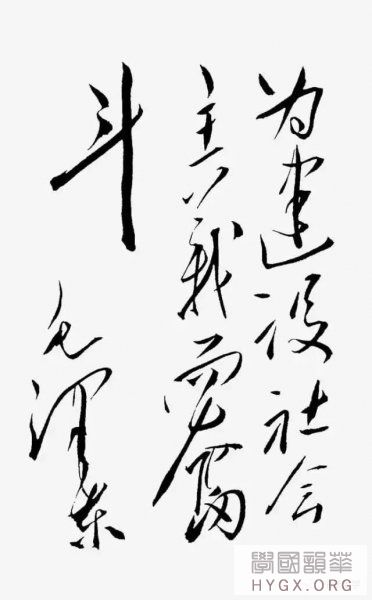 为建设社会
主義而奮
斗
毛泽东
華韻國學
HYGX.ORG